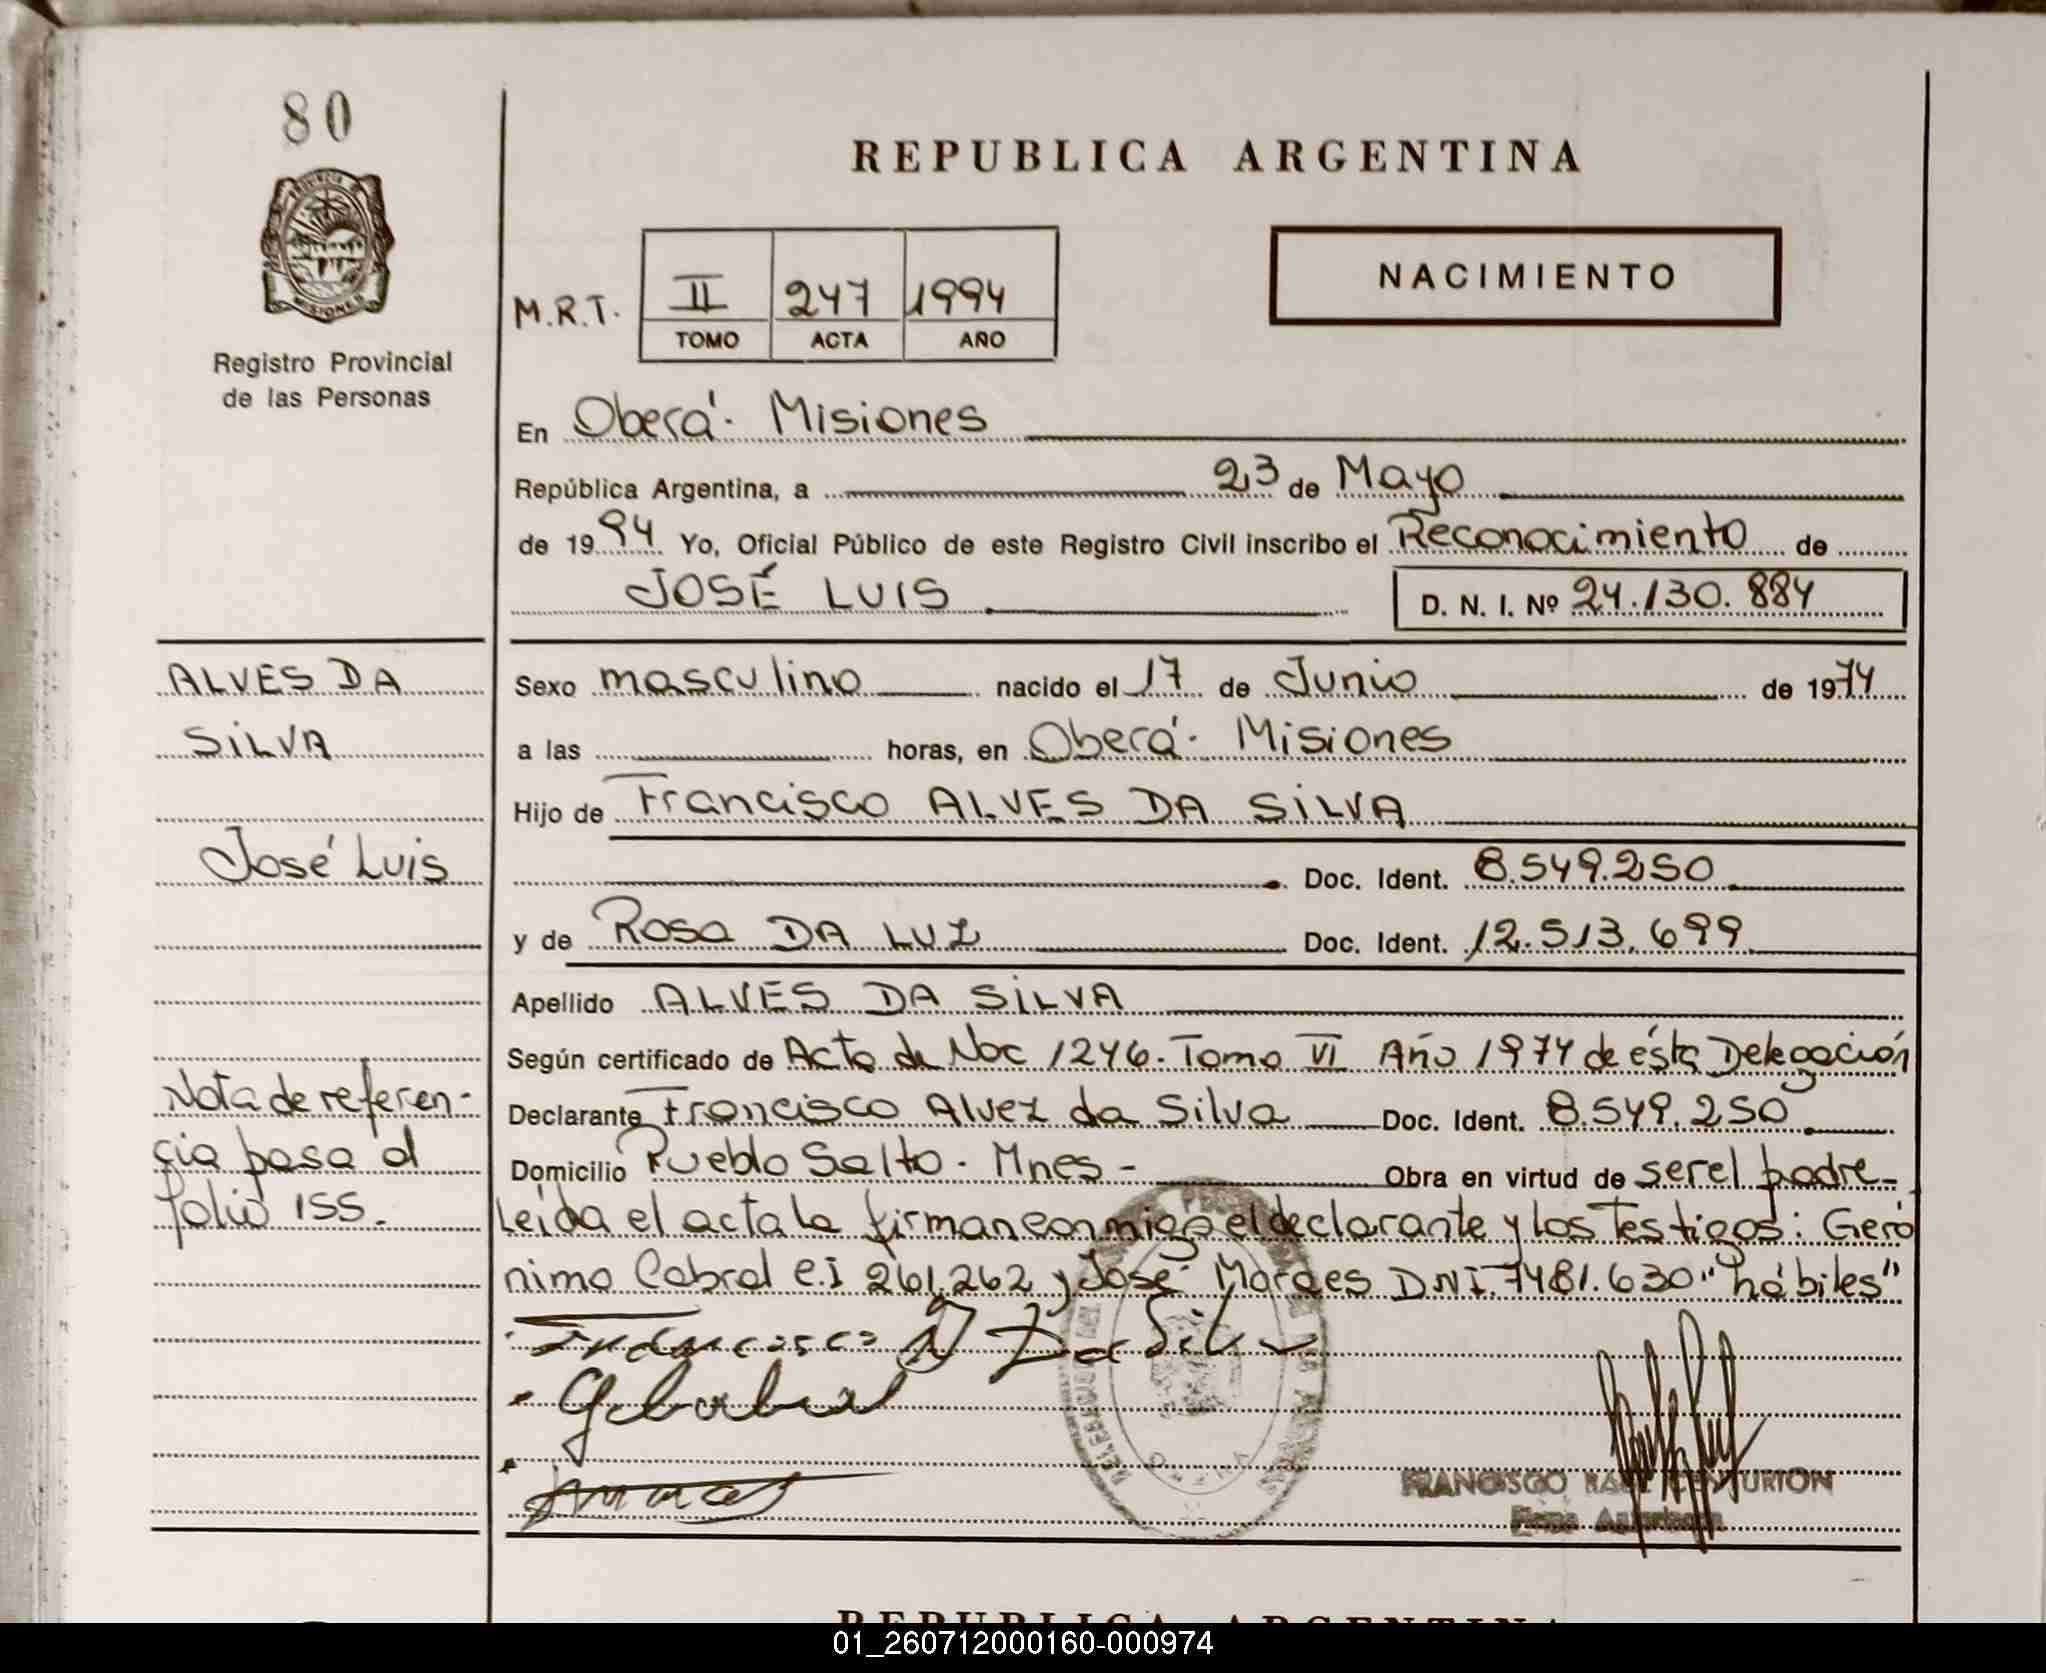 80
REPUBLICA ARGENTINA
PROVINCIA DE
MISIONES
Registro Provincial
de las Personas
NACIMIENTO
M.R.T. II 247 1994
TOMO ACTA AÑO
En Oberá. Misiones
República Argentina, a 23 de Mayo
de 1994 Yo, Oficial Público de este Registro Civil inscribo el Reconocimiento de
JOSÉ LUIS D. N. I. Nº 24.130.884
ALVES DA
SILVA
José Luis
Nota de referen-
cia pasa al
folio 155.
Sexo masculino nacido el 17 de Junio de 1974
a las horas, en Oberá. Misiones
Hijo de Francisco ALVES DA SILVA
Doc. Ident. 8.549.250
y de Rosa DA LUZ Doc. Ident. 12.513.699
Apellido ALVES DA SILVA
Según certificado de Acta de Nac 1246. Tomo VI Año 1974 de ésta Delegación
Declarante Francisco Alvez da Silva Doc. Ident. 8.549.250
Domicilio Pueblo Salto. Mnes - Obra en virtud de ser el padre-
Leída el acta la firman conmigo el declarante y los Testigos: Geró
nimo Cabral C.I 261.262 y José Moraes DNI. 7481.630 "hábiles"
Francisco A Da Silva
G Cabral
OBERA
FRANCISCO RAUL CENTURION
Firma Autorizada
REPUBLICA ARGENTINA
01_260712000160-000974